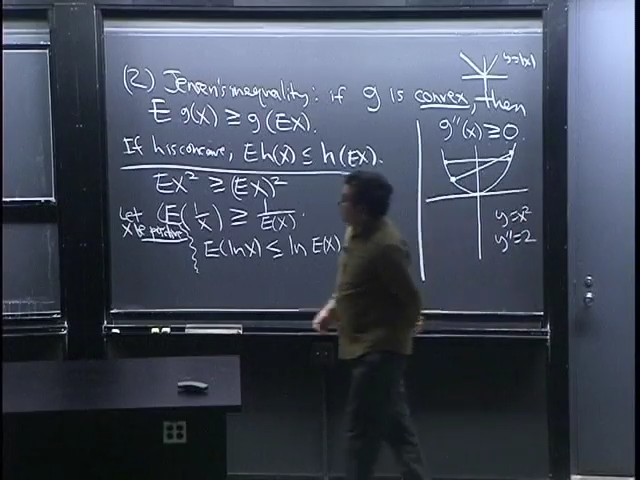 (2) Jensen's inequality: if g is convex, then
E g(X) ≥ g(EX).
If h is concave, E h(X) ≤ h(EX).
EX² ≥ (EX)²
Let X be positive
E(1/X) ≥ 1/E(X).
E(ln X) ≤ ln E(X)
y=|x|
g''(x) ≥ 0.
y=x²
y''=2